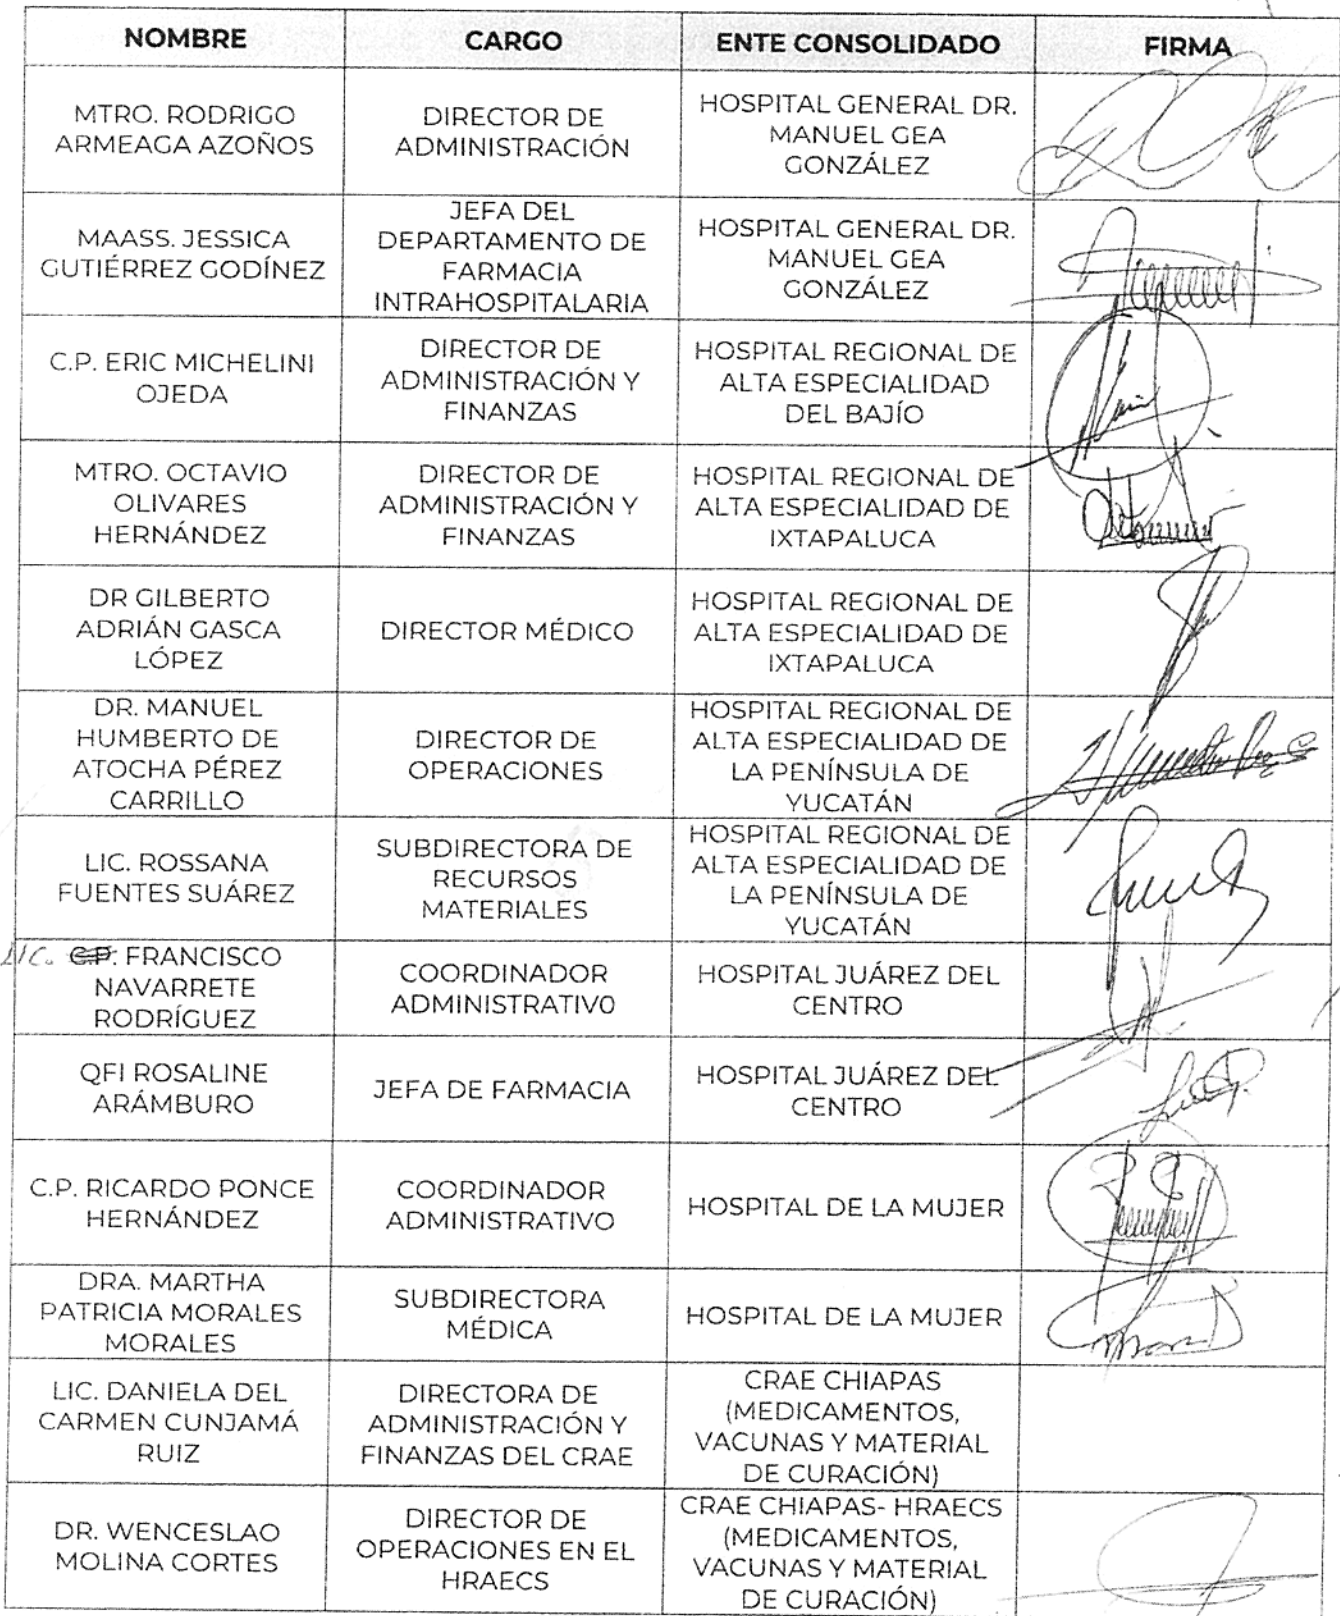 NOMBRE CARGO ENTE CONSOLIDADO FIRMA
MTRO. RODRIGO
ARMEAGA AZOÑOS
DIRECTOR DE
ADMINISTRACIÓN
HOSPITAL GENERAL DR.
MANUEL GEA
GONZÁLEZ
MAASS. JESSICA
GUTIÉRREZ GODÍNEZ
JEFA DEL
DEPARTAMENTO DE
FARMACIA
INTRAHOSPITALARIA
HOSPITAL GENERAL DR.
MANUEL GEA
GONZÁLEZ
C.P. ERIC MICHELINI
OJEDA
DIRECTOR DE
ADMINISTRACIÓN Y
FINANZAS
HOSPITAL REGIONAL DE
ALTA ESPECIALIDAD
DEL BAJÍO
MTRO. OCTAVIO
OLIVARES
HERNÁNDEZ
DIRECTOR DE
ADMINISTRACIÓN Y
FINANZAS
HOSPITAL REGIONAL DE
ALTA ESPECIALIDAD DE
IXTAPALUCA
DR GILBERTO
ADRIÁN GASCA
LÓPEZ
DIRECTOR MÉDICO
HOSPITAL REGIONAL DE
ALTA ESPECIALIDAD DE
IXTAPALUCA
DR. MANUEL
HUMBERTO DE
ATOCHA PÉREZ
CARRILLO
DIRECTOR DE
OPERACIONES
HOSPITAL REGIONAL DE
ALTA ESPECIALIDAD DE
LA PENÍNSULA DE
YUCATÁN
LIC. ROSSANA
FUENTES SUÁREZ
SUBDIRECTORA DE
RECURSOS
MATERIALES
HOSPITAL REGIONAL DE
ALTA ESPECIALIDAD DE
LA PENÍNSULA DE
YUCATÁN
LIC. C.P. FRANCISCO
NAVARRETE
RODRÍGUEZ
COORDINADOR
ADMINISTRATIV0
HOSPITAL JUÁREZ DEL
CENTRO
QFI ROSALINE
ARÁMBURO
JEFA DE FARMACIA
HOSPITAL JUÁREZ DEL
CENTRO
C.P. RICARDO PONCE
HERNÁNDEZ
COORDINADOR
ADMINISTRATIVO
HOSPITAL DE LA MUJER
DRA. MARTHA
PATRICIA MORALES
MORALES
SUBDIRECTORA
MÉDICA
HOSPITAL DE LA MUJER
LIC. DANIELA DEL
CARMEN CUNJAMÁ
RUIZ
DIRECTORA DE
ADMINISTRACIÓN Y
FINANZAS DEL CRAE
CRAE CHIAPAS
(MEDICAMENTOS,
VACUNAS Y MATERIAL
DE CURACIÓN)
DR. WENCESLAO
MOLINA CORTES
DIRECTOR DE
OPERACIONES EN EL
HRAECS
CRAE CHIAPAS- HRAECS
(MEDICAMENTOS,
VACUNAS Y MATERIAL
DE CURACIÓN)